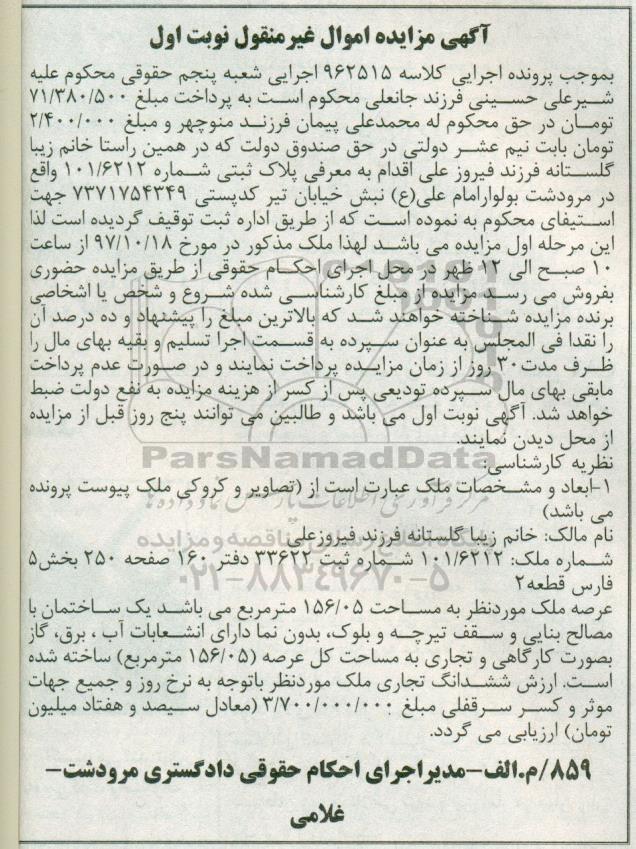 آگهی مزایده اموال غیرمنقول نوبت اول
بموجب پرونده اجرایی کلاسه ۹۶۲۵۱۵ اجرایی شعبه پنجم حقوقی محکوم علیه
شیرعلی حسینی فرزند جانعلی محکوم است به پرداخت مبلغ ۷۱/۳۸۰/۵۰۰
تومان در حق محکوم له محمدعلی پیمان فرزند منوچهر و مبلغ ۲/۴۰۰/۰۰۰
تومان بابت نیم عشر دولتی در حق صندوق دولت که در همین راستا خانم زیبا
گلستانه فرزند فیروز علی اقدام به معرفی پلاک ثبتی شماره ۱۰۱/۶۲۱۲ واقع
در مرودشت بولوارامام علی(ع) نبش خیابان تیر کدپستی ۷۳۷۱۷۵۴۳۴۹ جهت
استیفای محکوم به نموده است که از طریق اداره ثبت توقیف گردیده است لذا
این مرحله اول مزایده می باشد لهذا ملک مذکور در مورخ ۹۷/۱۰/۱۸ از ساعت
۱۰ صبح الی ۱۲ ظهر در محل اجرای احکام حقوقی از طریق مزایده حضوری
بفروش می رسد مزایده از مبلغ کارشناسی شده شروع و شخص یا اشخاصی
برنده مزایده شناخته خواهند شد که بالاترین مبلغ را پیشنهاد و ده درصد آن
را نقدا فی المجلس به عنوان سپرده به قسمت اجرا تسلیم و بقیه بهای مال را
ظرف مدت ۳۰ روز از زمان مزایده پرداخت نمایند و در صورت عدم پرداخت
مابقی بهای مال سپرده تودیعی پس از کسر از هزینه مزایده به نفع دولت ضبط
خواهد شد. آگهی نوبت اول می باشد و طالبین می توانند پنج روز قبل از مزایده
از محل دیدن نمایند.
ParsNamadData
نظریه کارشناسی:
۱-ابعاد و مشخصات ملک عبارت است از (تصاویر و کروکی ملک پیوست پرونده
می باشد)
نام مالک: خانم زیبا گلستانه فرزند فیروزعلی
شماره ملک: ۱۰۱/۶۲۱۲ شماره ثبت ۳۳۶۲۲ دفتر ۱۶۰ صفحه ۲۵۰ بخش۵
فارس قطعه۲
۰۲۱-۸۸۳۴۹۶۷۰-۵
عرصه ملک موردنظر به مساحت ۱۵۶/۰۵ مترمربع می باشد یک ساختمان با
مصالح بنایی و سقف تیرچه و بلوک، بدون نما دارای انشعابات آب ، برق، گاز
بصورت کارگاهی و تجاری به مساحت کل عرصه (۱۵۶/۰۵ مترمربع) ساخته شده
است. ارزش ششدانگ تجاری ملک موردنظر باتوجه به نرخ روز و جمیع جهات
موثر و کسر سرقفلی مبلغ ۳/۷۰۰/۰۰۰/۰۰۰ (معادل سیصد و هفتاد میلیون
تومان) ارزیابی می گردد.
۸۵۹/م.الف-مدیراجرای احکام حقوقی دادگستری مرودشت-
غلامی